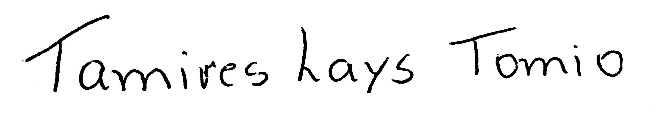 Tamires Lays Tomio